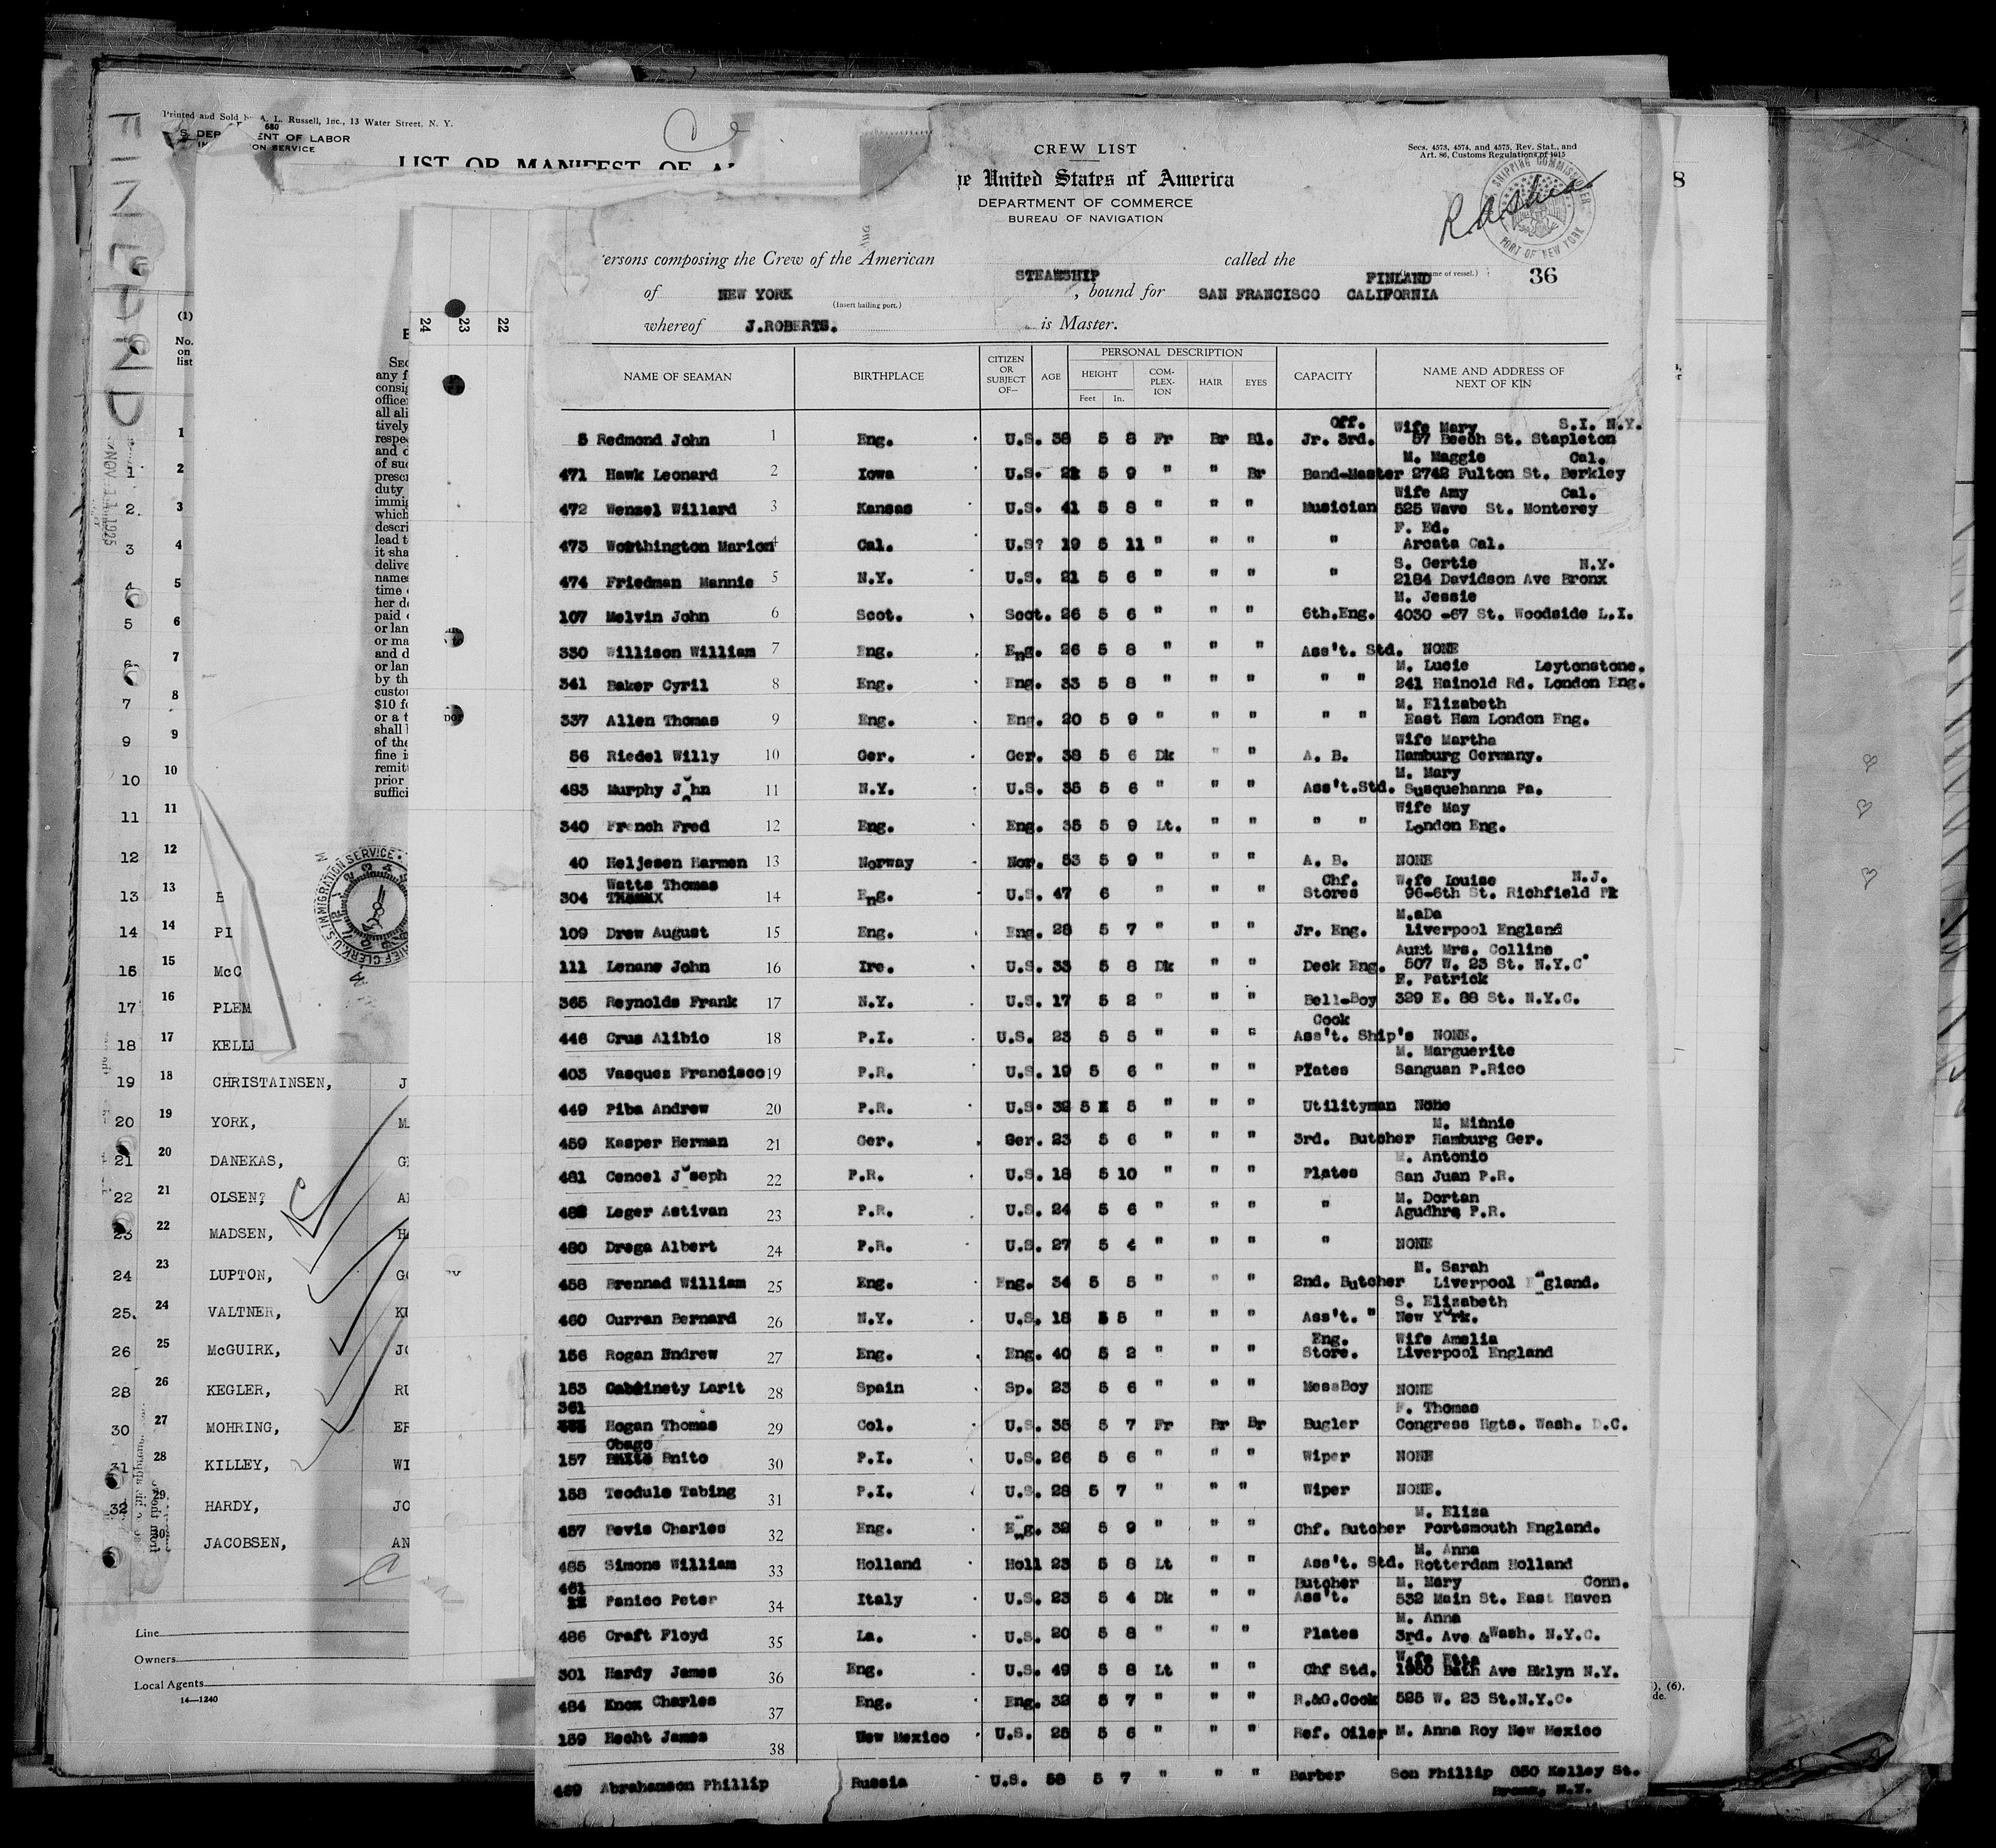 Printed and Sold by A. L. Russell, Inc., 13 Water Street, N. Y.
680
ENT OF LABOR
ON SERVICE
LIST OR MANIFEST OF
CREW LIST
United States of America
DEPARTMENT OF COMMERCE
BUREAU OF NAVIGATION
Secs. 4573, 4574, and 4575, Rev. Stat., and
Art. 86, Customs Regulations of 1915
SHIPPING COMMISSIONER
PORT OF NEW YORK
36
ersons composing the Crew of the American STEAMSHIP called the FINLAND
of NEW YORK (Insert hailing port.) , bound for SAN FRANCISCO CALIFORNIA
whereof J.ROBERTS. is Master.
NAME OF SEAMAN BIRTHPLACE CITIZEN OR SUBJECT OF— AGE PERSONAL DESCRIPTION HEIGHT Feet In. COM-PLEX-ION HAIR EYES CAPACITY NAME AND ADDRESS OF NEXT OF KIN
5 Redmond John 1 Eng. U.S. 38 5 8 Fr Br Bl. Off. Jr. 3rd. Wife Mary S.I. N.Y. 57 Beech St. Stapleton
471 Hawk Leonard 2 Iowa U.S. 5 9 " " Br Band-Master M. Maggie Cal. 2742 Fulton St. Berkley
472 Wensel Willard 3 Kansas U.S. 41 5 8 " " " Musician Wife Amy Cal. 525 Wave St. Monterey
473 Worthington Marion 4 Cal. U.S? 19 5 11 " " " " F. Ed. Arcata Cal.
474 Friedman Mannie 5 N.Y. U.S. 21 5 6 " " " " S. Gertie N.Y. 2184 Davidson Ave Bronx
107 Melvin John 6 Scot. Scot. 26 5 6 " " " 6th.Eng. M. Jessie 4030 -67 St. Woodside L.I.
330 Willison William 7 Eng. Eng. 26 5 8 " " " Ass't. Std. NONE
341 Baker Cyril 8 Eng. Eng. 33 5 8 " " " " " M. Lucie Leytonstone. 241 Hainold Rd. London Eng.
337 Allen Thomas 9 Eng. Eng. 20 5 9 " " " " " M. Elizabeth East Ham London Eng.
56 Riedel Willy 10 Ger. Ger. 38 5 6 Dk " " A. B. Wife Martha Hamburg Germany.
483 Murphy John 11 N.Y. U.S. 35 5 6 " " " Ass't.Std. M. Mary Susquehanna Pa.
340 French Fred 12 Eng. Eng. 35 5 9 Lt. " " " " Wife May London Eng.
40 Heljesen Harmen 13 Norway Nor. 53 5 9 " " " A. B. NONE
304 Watts Thomas 14 Eng. U.S. 47 6 " " " Chf. Stores Wife Louise N.J. 96-6th St. Richfield Pk
109 Drew August 15 Eng. Eng. 28 5 7 " " " Jr. Eng. M.aDa Liverpool England
111 Lenane John 16 Ire. U.S. 33 5 8 Dk " " Deck Eng. Aunt Mrs. Collins 507 W. 23 St. N.Y.C
365 Reynolds Frank 17 N.Y. U.S. 17 5 2 " " " Bell-Boy F. Patrick 329 E. 88 St. N.Y.C.
446 Crus Alibio 18 P.I. U.S. 23 5 5 " " " Cook Ass't. Ship's NONE.
403 Vasquez Francisco 19 P.R. U.S. 19 5 6 " " " Plates M. Marguerite Sanguan P.Rico
449 Piba Andrew 20 P.R. U.S. 32 5 5 " " " Utilityman None
459 Kasper Herman 21 Ger. Ger. 23 5 6 " " " 3rd. Butcher M. Minnie Hamburg Ger.
481 Cencel Joseph 22 P.R. U.S. 18 5 10 " " " Plates M. Antonio San Juan P.R.
482 Leger Astivan 23 P.R. U.S. 24 5 6 " " " " M. Dortan Agudhre P.R.
480 Drega Albert 24 P.R. U.S. 27 5 4 " " " " NONE
458 Brennad William 25 Eng. Eng. 34 5 5 " " " 2nd. Butcher M. Sarah Liverpool England.
460 Curran Bernard 26 N.Y. U.S. 18 5 5 " " " Ass't. " S. Elizabeth New York.
156 Rogan Endrew 27 Eng. Eng. 40 5 2 " " " Eng. Store. Wife Amelia Liverpool England
153 Lorit 28 Spain Sp. 23 5 6 " " " MessBoy NONE
361 Hogan Thomas 29 Col. U.S. 35 5 7 Fr Br Br Bugler F. Thomas Congress Hgts. Wash. D.C.
157 Obago Bnito 30 P.I. U.S. 26 5 6 " " " Wiper NONE
158 Teodulo Tabing 31 P.I. U.S. 28 5 7 " " " Wiper NONE.
457 Bevis Charles 32 Eng. Eng. 32 5 9 " " " Chf. Butcher M. Eliza Portsmouth England.
485 Simons William 33 Holland Holl 23 5 8 Lt " " Ass't. Std. M. Anna Rotterdam Holland
461 Panico Peter 34 Italy U.S. 23 5 4 Dk " " Butcher Ass't. M. Mary Conn. 532 Main St. East Haven
486 Craft Floyd 35 La. U.S. 20 5 8 " " " Plates M. Anna 3rd. Ave &Wash. N.Y.C.
301 Hardy James 36 Eng. U.S. 49 5 8 Lt " " Chf Std. Wife Etta 1950 Bath Ave Bklyn N.Y.
484 Knox Charles 37 Eng. Eng. 32 5 7 " " " R.&G.Cook 525 W. 23 St.N.Y.C.
159 Hecht James 38 New Mexico U.S. 25 5 6 " " " Ref. Oiler M. Anna Roy New Mexico
469 Abrahamson Phillip Russia U.S. 58 5 7 " " " Barber Son Phillip 850 Kelley St. Bronx, N.Y.
FINLAND
NOV 11 1925
(1)
No.
on
list
24 23 22
U.S. IMMIGRATION SERVICE
CHIEF CLERK
14 14 PI
16 15 McC
17 16 PLEM
18 17 KELL
19 18 CHRISTAINSEN, J
20 19 YORK, M
21 20 DANEKAS, G
22 21 OLSEN? A
23 22 MADSEN, H
24 23 LUPTON, G
25. 24 VALTNER, K
26 25 McGUIRK, J
28 26 KEGLER, RU
30 27 MOHRING, E
31 28 KILLEY, WI
32 29 HARDY, JO
30 JACOBSEN, AN
Line
Owners
Local Agents
14—1240